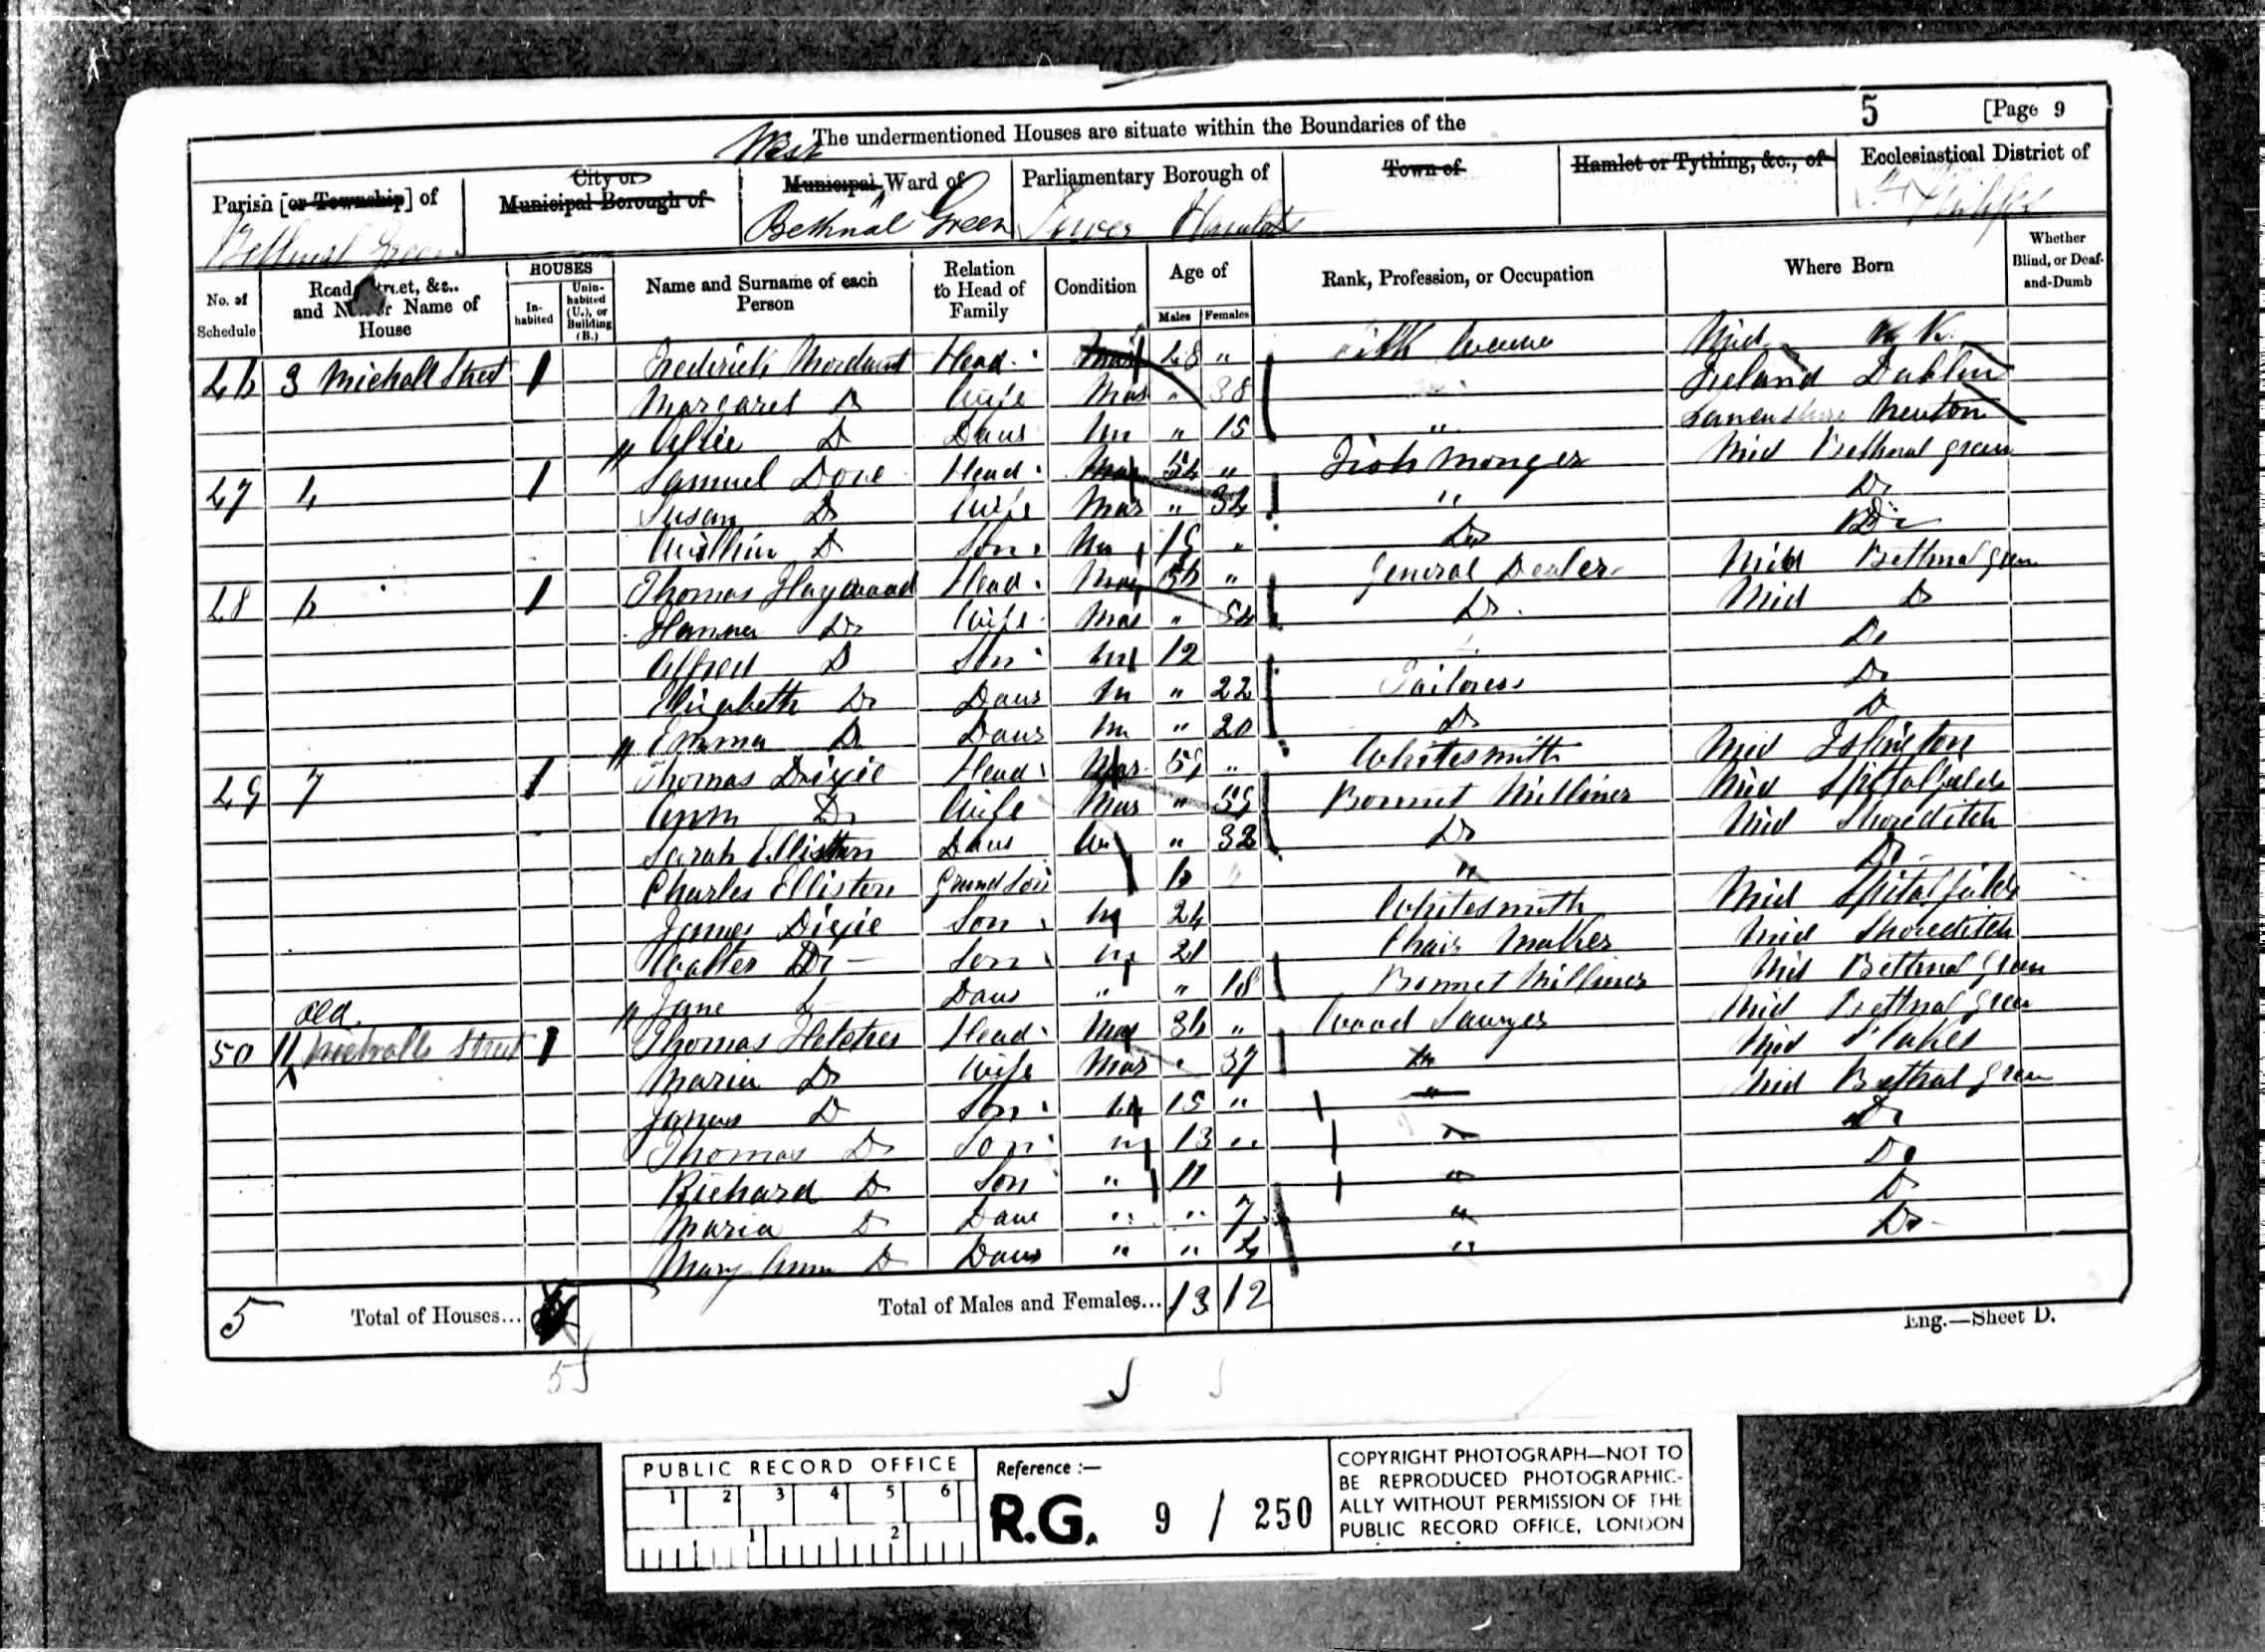 5 [Page 9
The undermentioned Houses are situate within the Boundaries of the
West
Parish [or Township] of City or Municipal Borough of Municipal Ward of Parliamentary Borough of Town of Hamlet or Tything, &c., of Ecclesiastical District of
Bethnal Green Bethnal Green Tower Hamlets St Philips
No. of Schedule Road, Street, &c., and No. or Name of House HOUSES Inhabited Uninhabited (U.), or Building (B.) Name and Surname of each Person Relation to Head of Family Condition Age of Males Females Rank, Profession, or Occupation Where Born Whether Blind, or Deaf-and-Dumb
3 Nichall Street 1 Frederick Mordaunt Head Mar 48 " Mid
Margaret D Wife Mar " 38 Ireland Dublin
" D Daur Un " 15 " Newton
47 4 1 Samuel Dove Head Mar 54 " Fish Monger Mid Bethnal green
Susan Do Wife Mar " 34 " Do
William D Son Un 15 " Do Do
48 6 1 Thomas Haywood Head Mar 56 " General Dealer Mid Bethnal green
Hanna Do Wife Mar " 54 Do Mid Do
Alfred D Son Un 12 Do
Elizabeth Do Daur Un " 22 Tailoress Do
" Emma D Daur Un " 20 Do D
49 7 1 Thomas Dixie Head Mar 59 " Whitesmith Mid Islington
Ann Do Wife Mar " 59 Bonnet Milliner Mid Spitalfields
Sarah Elliston Daur W " 32 Do Mid Shoreditch
Charles Elliston Grand Son 6 " Do
James Dixie Son Un 24 Whitesmith Mid Spitalfields
Walter Do Son Un 21 Chair Maker Mid Shoreditch
" Jane Do Daur " " 18 Bonnet Milliner Mid Bethnal Green
old
50 11 Nicholls Street 1 Thomas Fletcher Head Mar 36 " Wood Sawyer Mid Bethnal green
Maria Do Wife Mar " 37 " Mid St Lukes
James D Son Un 15 " " Mid Bethnal green
Thomas Do Son Un 13 " " Do
Richard D Son " 11 " Do
Maria D Daur " " 7 " D
Mary Ann D Daur " " 4 " Do
5 Total of Houses... 5 Total of Males and Females... 13 12
Eng.—Sheet D.
PUBLIC RECORD OFFICE
1 2 3 4 5 6
1 2
Reference :—
R.G. 9 / 250
COPYRIGHT PHOTOGRAPH—NOT TO
BE REPRODUCED PHOTOGRAPHIC-
ALLY WITHOUT PERMISSION OF THE
PUBLIC RECORD OFFICE, LONDON